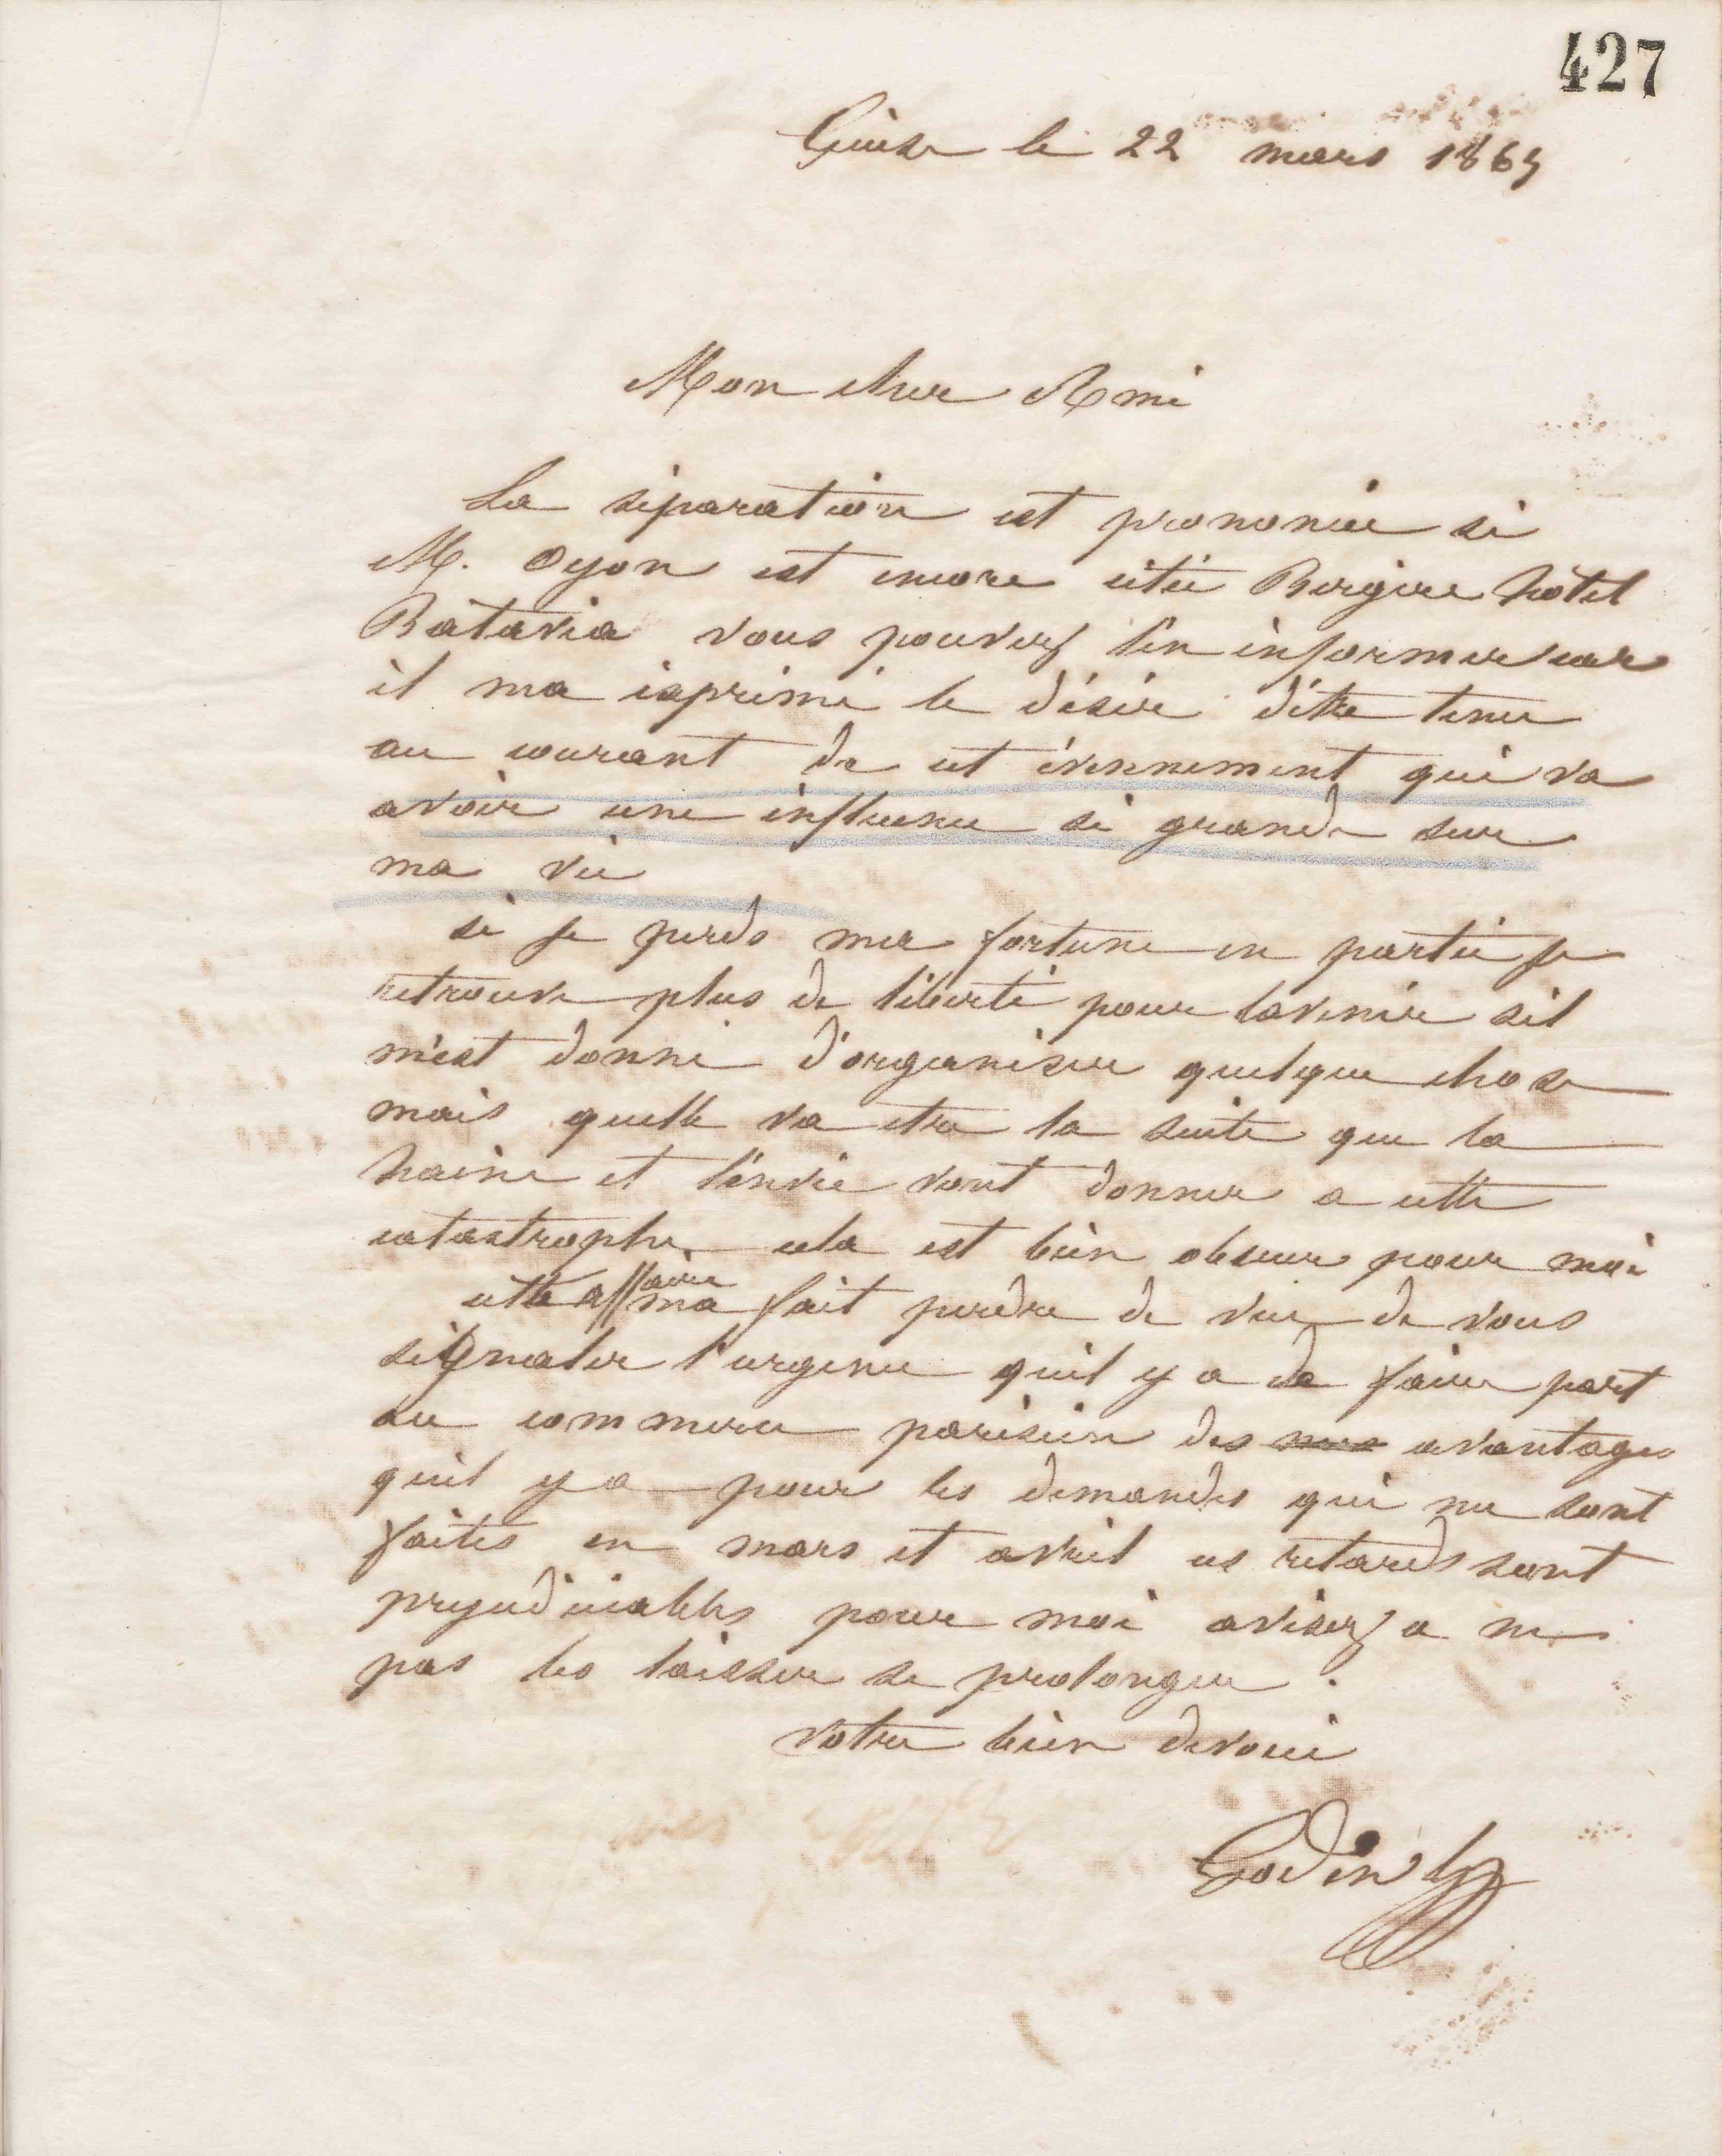 427
Guise le 22 mars 1865
Mon cher Ami
La séparation est prononcée si
M. Oyon est encore citée Bergère hôtel
Batavia vous pouvez l'en informer car
il ma exprimé le désir d'être tenu
au courant de cet événnement qui va
avoir une influence si grande sur
ma vie
si je perds ma fortune en partie je
retrouve plus de liberté pour lavenir sil
m'est donné d'organiser quelque chose
mais quelle va etre la suite que la
haine et l'envie vont donner a cette
catastrophe cela est bien obscur pour moi
cette affaire ma fait perdre de vue de vous
signaler l'urgence quil y a de faire part
au commerce parisien des mes avantages
quil y a pour les demandes qui me sont
faites en mars et avril ces retards sont
prejudiciables pour moi avisez a ne
pas les laisser se prolonger .
votre bien devoué
Godin